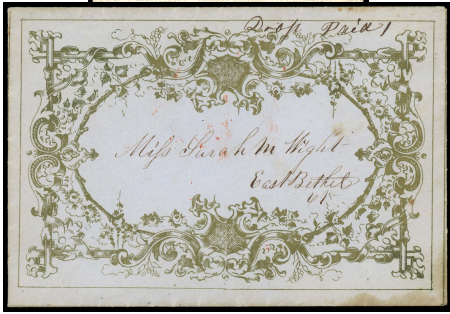 Drop Paid 1
Miss Sarah M Wight
East Bethel
Vt.